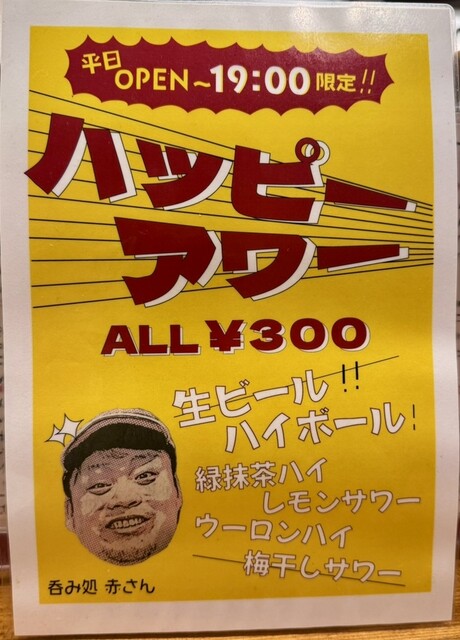 平日
OPEN～19:00限定!!
ハッピー
アワー
ALL ¥300
生ビール!!
ハイボール!
緑抹茶ハイ
レモンサワー
ウーロンハイ
梅干しサワー
呑み処 赤さん